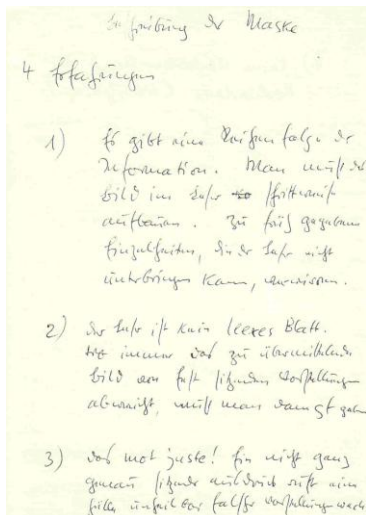 Beschreibung der Maske
4 Erfahrungen
1) Es gibt eine Reihenfolge der
Information. Man muß das
Bild im Leser schrittweise
aufbauen. Zu früh gegebene
Einzelheiten, die der Leser nicht
unterbringen kann, verwirren.
2) Der Leser ist kein leeres Blatt.
immer das zu übermittelnde
Bild von fest sitzenden Vorstellungen
abweicht, muß man
3) das mot juste! Ein nicht ganz
genau sitzender Ausdruck ruft eine
Fülle falsche Vorstellungen wach